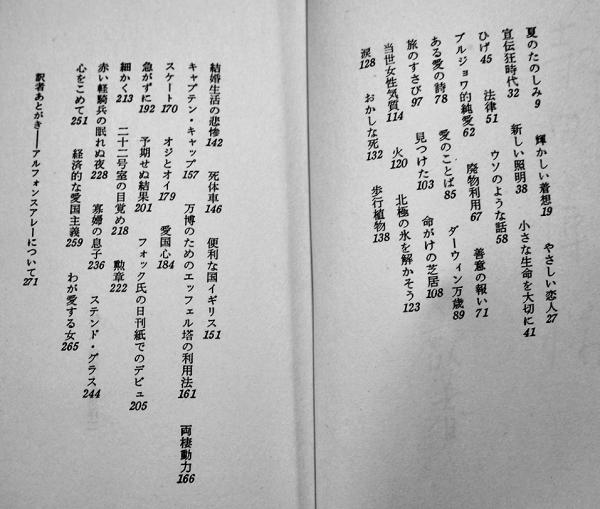 夏のたのしみ9 輝かしい着想19 やさしい恋人27
宣伝狂時代32 新しい照明38 小さな生命を大切に41
ひげ45 法律51 ウソのような話58
ブルジョワ的純愛62 廃物利用67 善意の報い71
ある愛の詩78 愛のことば85 ダーウィン万歳89
旅のすさび97 見つけた103 命がけの芝居108
当世女性気質114 火120 北極の氷を解かそう123
涙128 おかしな死132 歩行植物138
結婚生活の悲惨142 死体車146 便利な国イギリス151
キャプテン・キャップ157 万博のためのエッフェル塔の利用法161 両棲動力166
スケート170 オジとオイ179 愛国心184
急がずに192 予期せぬ結果201 フォック氏の日刊紙でのデビュ205
細かく213 二十二号室の目覚め218 勲章222
赤い軽騎兵の眠れぬ夜228 寡婦の息子236 ステンド・グラス244
心をこめて251 経済的な愛国主義259 わが愛する女265
訳者あとがき——アルフォンスアレーについて271